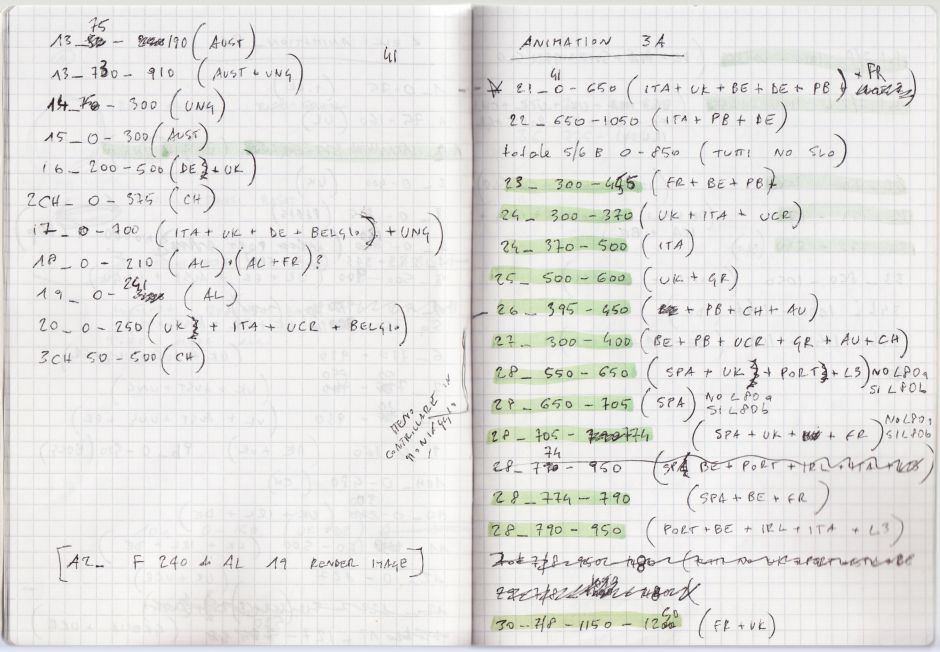 75
13_ - 190 (AUST)
41
13_730 - 910 (AUST + UNG)
14_ 0 - 300 (UNG)
15_0 - 300 (AUST)
16_ 200 - 500 (DE + UK)
2CH_ 0 - 375 (CH)
17_ 0 - 700 (ITA + UK + DE + BELGIO) + UNG)
18_0 - 210 (AL) (AL + FR) ?
19_ 0 - 241 (AL)
20_ 0 - 250 (UK + ITA + UCR + BELGIO)
3CH 50 - 500 (CH)
CONTROLLARE IN
[A2_ F 240 do AL 19 RENDER IMAGE]
ANIMATION 3A
21_ 0 - 650 (ITA + UK + BE + DE + PB) + FR
41
22_ 650 - 1050 (ITA + PB + DE)
totale 5/6 B 0 - 850 (TUTTI NO SLO)
23_ 300 - 455 (FR + BE + PB)
24_ 300 - 370 (UK + ITA + UCR)
24_ 370 - 500 (ITA)
25_ 500 - 600 (UK + GR)
26_ 395 - 450 ( + PB + CH + AU)
27_ 300 - 400 (BE + PB + UCR + GR + AU + CH)
28_ 550 - 650 (SPA + UK + PORT + L3) NO L80a
SI L80b
28_ 650 - 705 (SPA) NO L80a
SI L80b
28_ 705 - 774 (SPA + UK + FR) NO L80a
SI L80b
28_ 774 - 950 (SPA BE + PORT + IRL + ITA +
28_ 774 - 790 (SPA + BE + FR)
28_ 790 - 950 (PORT + BE + IRL + ITA + L3)
30_ 7/8 - 1150 - 1250 (FR + UK)